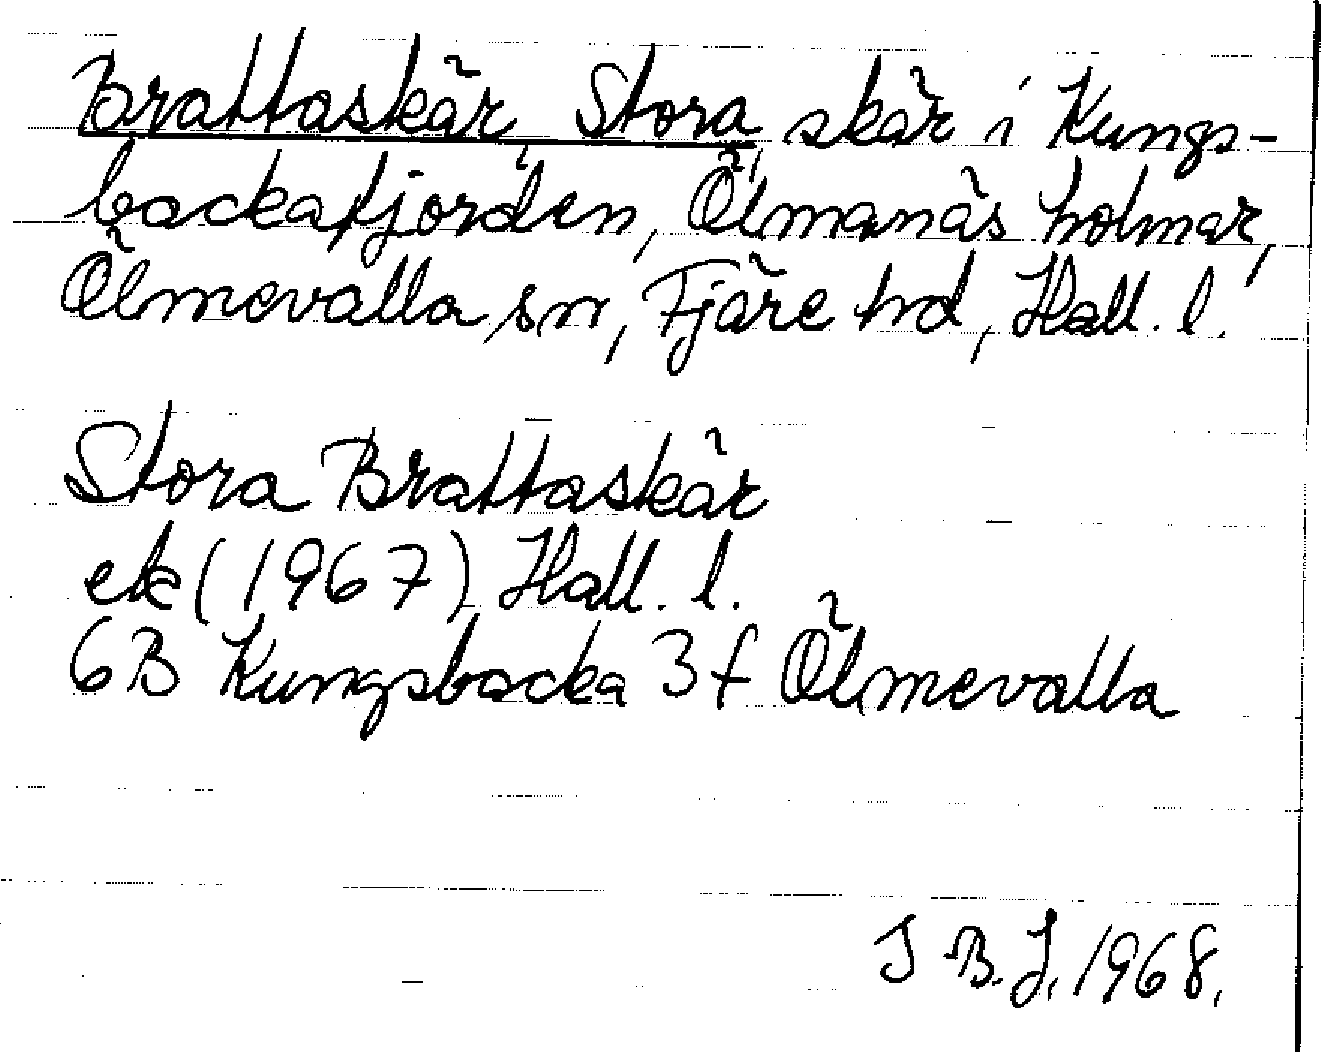 Brattaskär, Stora, skär i Kungs-
backafjorden, Ölmanäs holmar,
Ölmevalla sn, Fjäre hd, Hall. l.
Stora Brattaskär
ek (1967) Hall. l.
6B Kungsbacka 3f Ölmevalla
I B. J. 1968.